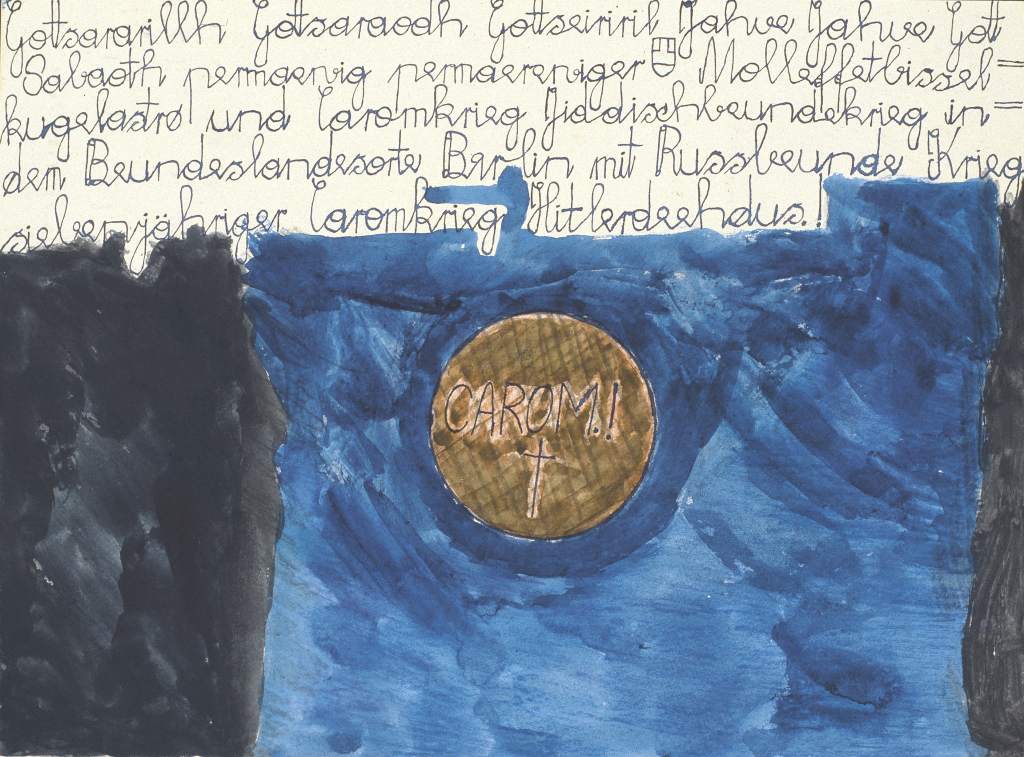 Gotsararillh Gotsaraodh Gotseiriril Jahve Jahve Got
Sabaoth permaenig permaereniger Molleffetbissel=
kugelastro und Caromkrieg Jiddischbeundekrieg in=
dem Beundeslandesorte Berlin mit Russbeunde Krieg
siebenjähriger Caromkrieg Hitlerdeehdus.!
CAROM.!